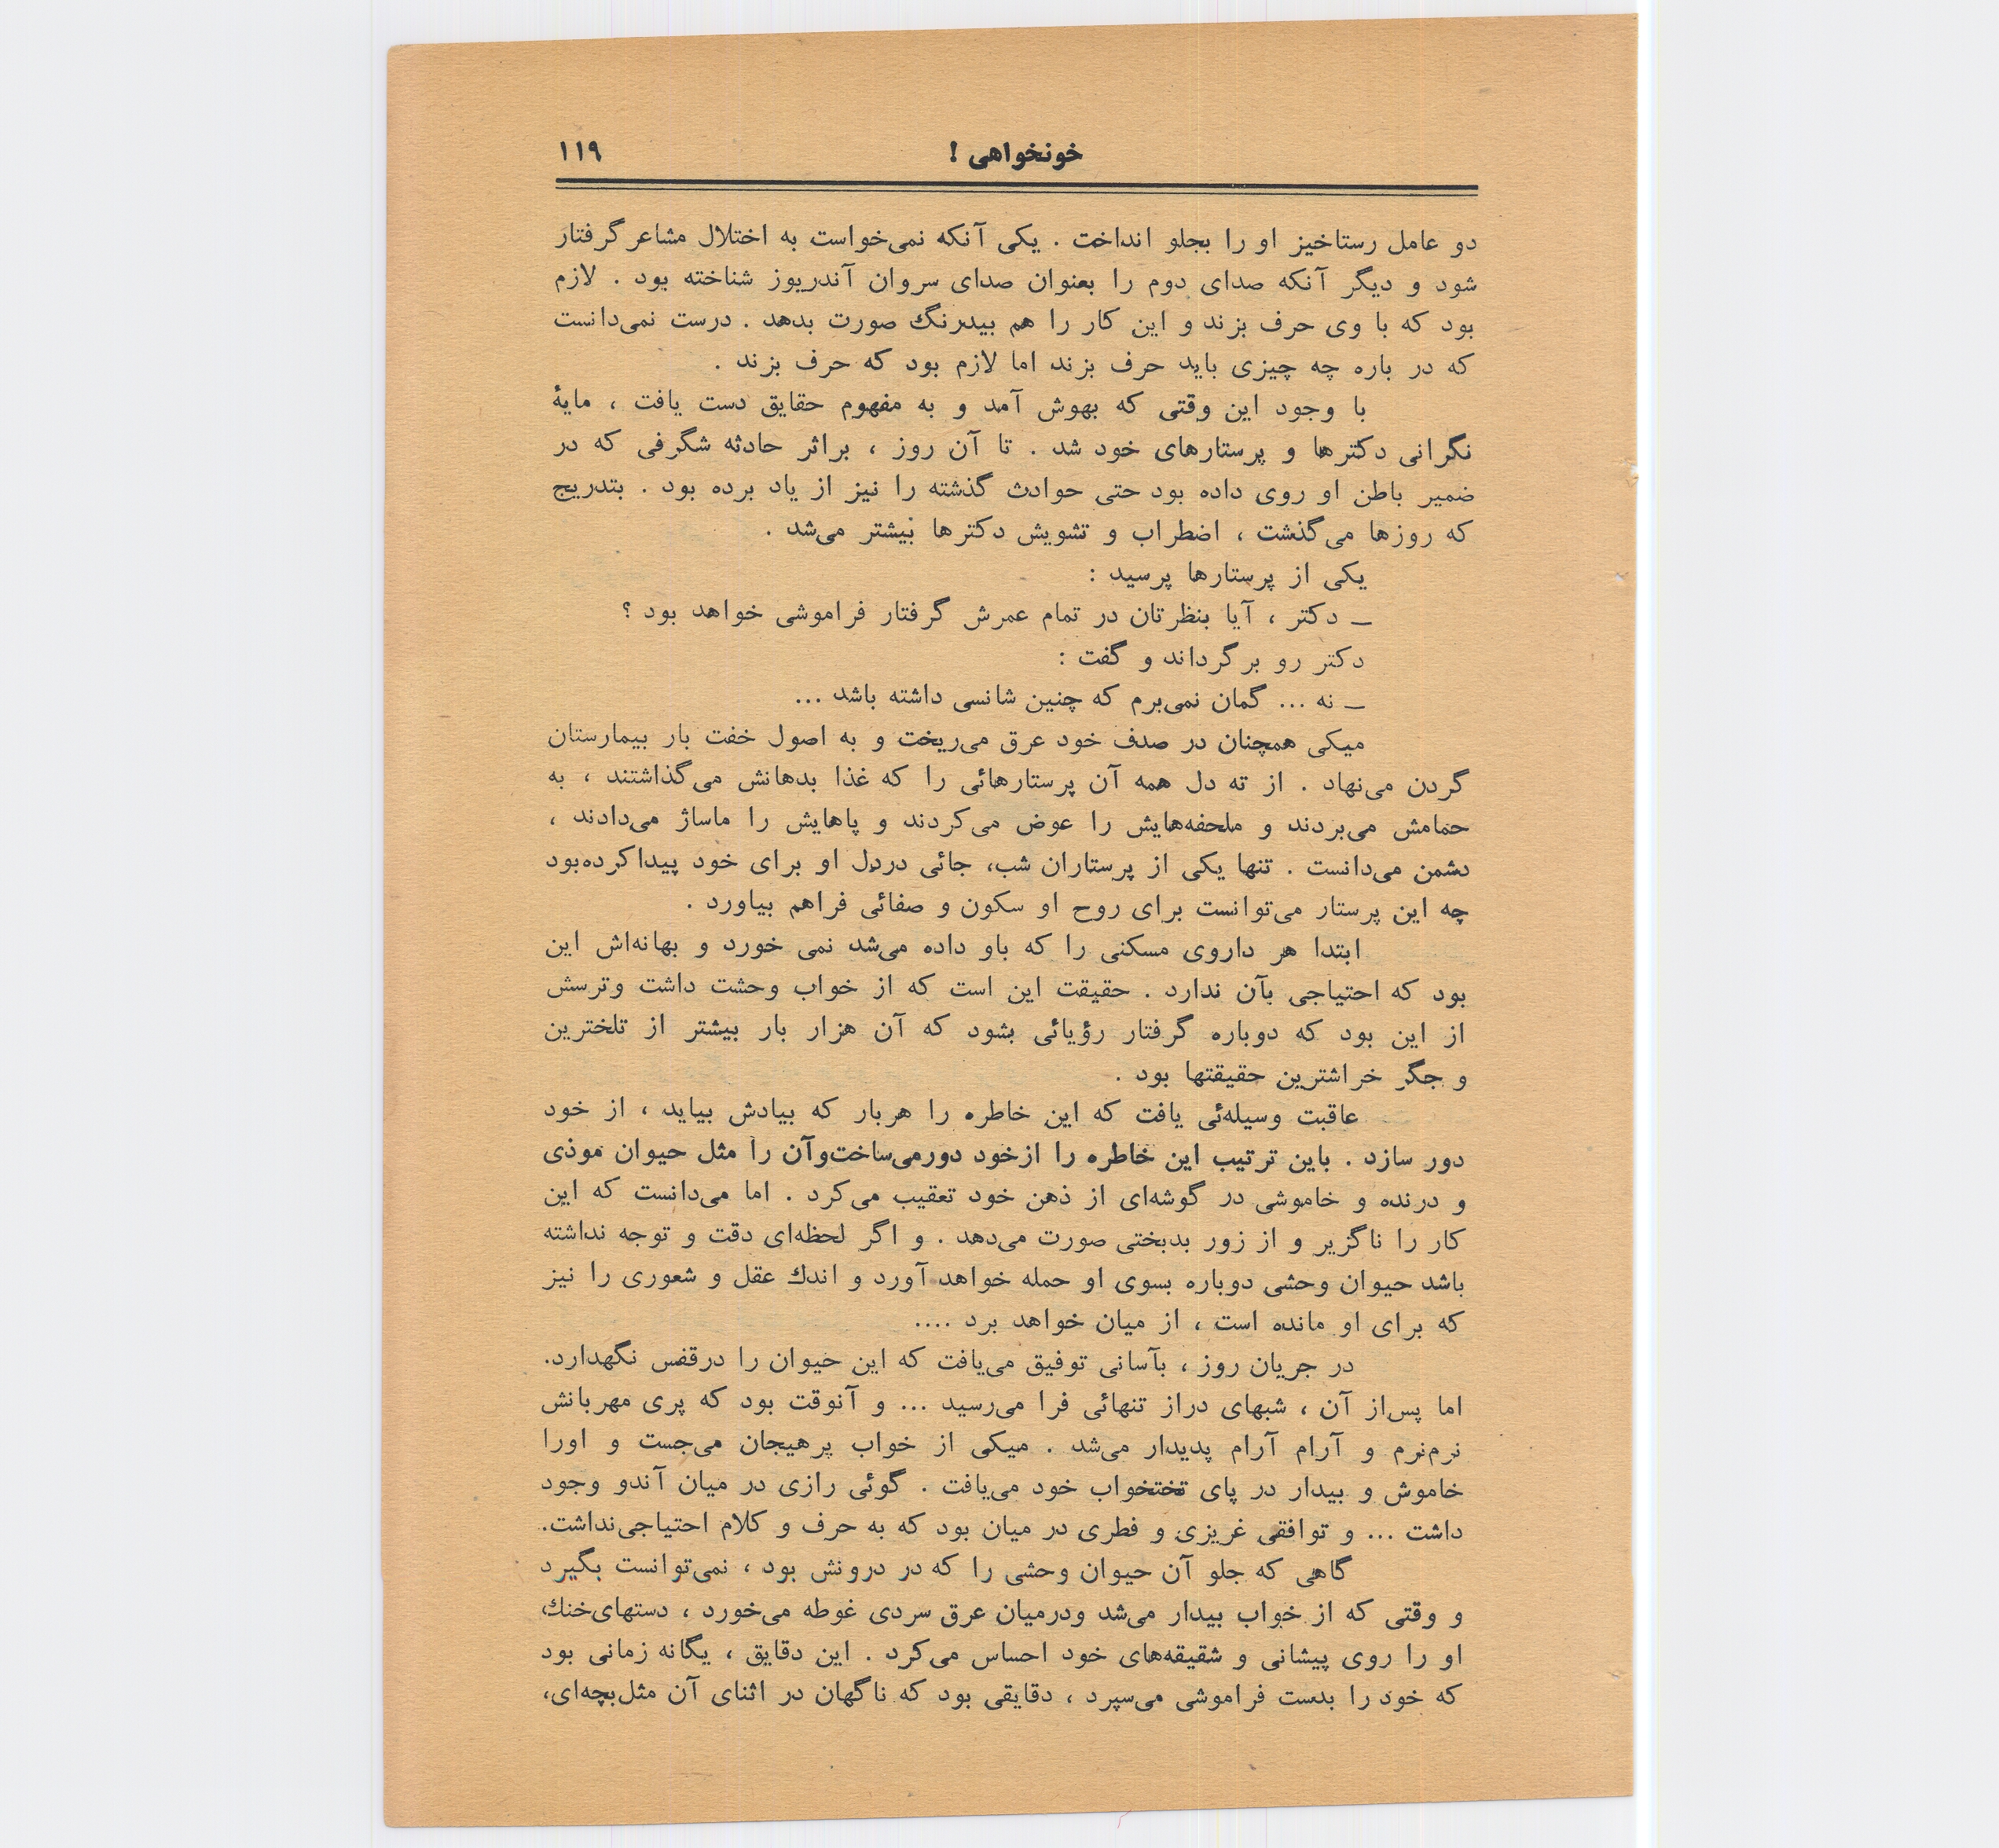 خونخواهی ! ۱۱۹
دو عامل رستاخیز او را بجلو انداخت . یکی آنکه نمی‌خواست به اختلال مشاعر گرفتار
شود و دیگر آنکه صدای دوم را بعنوان صدای سروان آندریوز شناخته بود . لازم
بود که با وی حرف بزند و این کار را هم بیدرنگ صورت بدهد . درست نمی‌دانست
که در باره چه چیزی باید حرف بزند اما لازم بود که حرف بزند .
با وجود این وقتی که بهوش آمد و به مفهوم حقایق دست یافت ، مایۀ
نگرانی دکترها و پرستارهای خود شد . تا آن روز ، براثر حادثه شگرفی که در
ضمیر باطن او روی داده بود حتی حوادث گذشته را نیز از یاد برده بود . بتدریج
که روزها می‌گذشت ، اضطراب و تشویش دکترها بیشتر می‌شد .
یکی از پرستارها پرسید :
ــ دکتر ، آیا بنظرتان در تمام عمرش گرفتار فراموشی خواهد بود ؟
دکتر رو برگرداند و گفت :
ــ نه ... گمان نمی‌برم که چنین شانسی داشته باشد ...
میکی همچنان در صدف خود عرق می‌ریخت و به اصول خفت بار بیمارستان
گردن می‌نهاد . از ته دل همه آن پرستارهائی را که غذا بدهانش می‌گذاشتند ، به
حمامش می‌بردند و ملحفه‌هایش را عوض می‌کردند و پاهایش را ماساژ می‌دادند ،
دشمن می‌دانست . تنها یکی از پرستاران شب، جائی دردل او برای خود پیداکرده‌بود
چه این پرستار می‌توانست برای روح او سکون و صفائی فراهم بیاورد .
ابتدا هر داروی مسکنی را که باو داده می‌شد نمی خورد و بهانه‌اش این
بود که احتیاجی بآن ندارد . حقیقت این است که از خواب وحشت داشت وترسش
از این بود که دوباره گرفتار رؤیائی بشود که آن هزار بار بیشتر از تلخترین
و جگر خراشترین حقیقتها بود .
عاقبت وسیله‌ئی یافت که این خاطره را هربار که بیادش بیاید ، از خود
دور سازد . باین ترتیب این خاطره را ازخود دورمی‌ساخت‌وآن را مثل حیوان موذی
و درنده و خاموشی در گوشه‌ای از ذهن خود تعقیب می‌کرد . اما می‌دانست که این
کار را ناگزیر و از زور بدبختی صورت می‌دهد . و اگر لحظه‌ای دقت و توجه نداشته
باشد حیوان وحشی دوباره بسوی او حمله خواهد آورد و اندك عقل و شعوری را نیز
که برای او مانده است ، از میان خواهد برد ....
در جریان روز ، بآسانی توفیق می‌یافت که این حیوان را درقفس نگهدارد.
اما پس‌از آن ، شبهای دراز تنهائی فرا می‌رسید ... و آنوقت بود که پری مهربانش
نرم‌نرم و آرام آرام پدیدار می‌شد . میکی از خواب پرهیجان می‌جست و اورا
خاموش و بیدار در پای تختخواب خود می‌یافت . گوئی رازی در میان آندو وجود
داشت ... و توافقی غریزی و فطری در میان بود که به حرف و کلام احتیاجی‌نداشت.
گاهی که جلو آن حیوان وحشی را که در درونش بود ، نمی‌توانست بگیرد
و وقتی که از خواب بیدار می‌شد ودرمیان عرق سردی غوطه می‌خورد ، دستهای‌خنك
او را روی پیشانی و شقیقه‌های خود احساس می‌کرد . این دقایق ، یگانه زمانی بود
که خود را بدست فراموشی می‌سپرد ، دقایقی بود که ناگهان در اثنای آن مثل‌بچه‌ای،